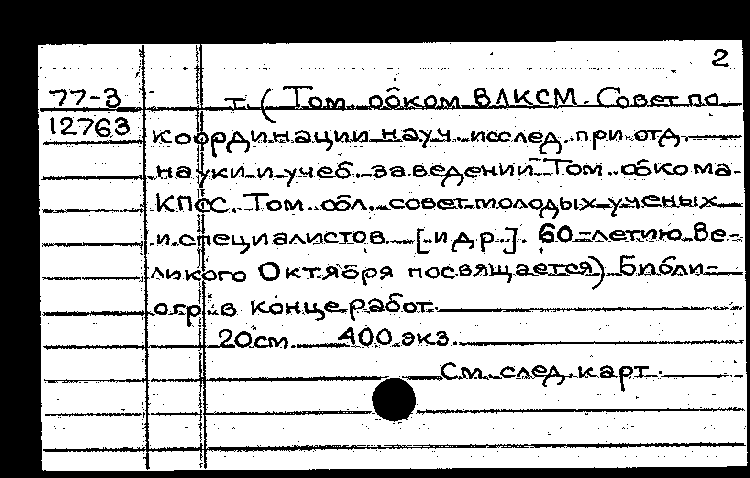 2
77-3 т. (Том. обком ВЛКСМ. Совет по
12763 координации науч. исслед. при отд.
науки и учеб. заведений Том. обкома
КПСС. Том. обл. совет молодых ученых
и специалистов [и др.]. 60-летию Ве-
ликого Октября посвящается) Библи-
огр. в конце работ.
20см 400 экз.
См. след. карт.